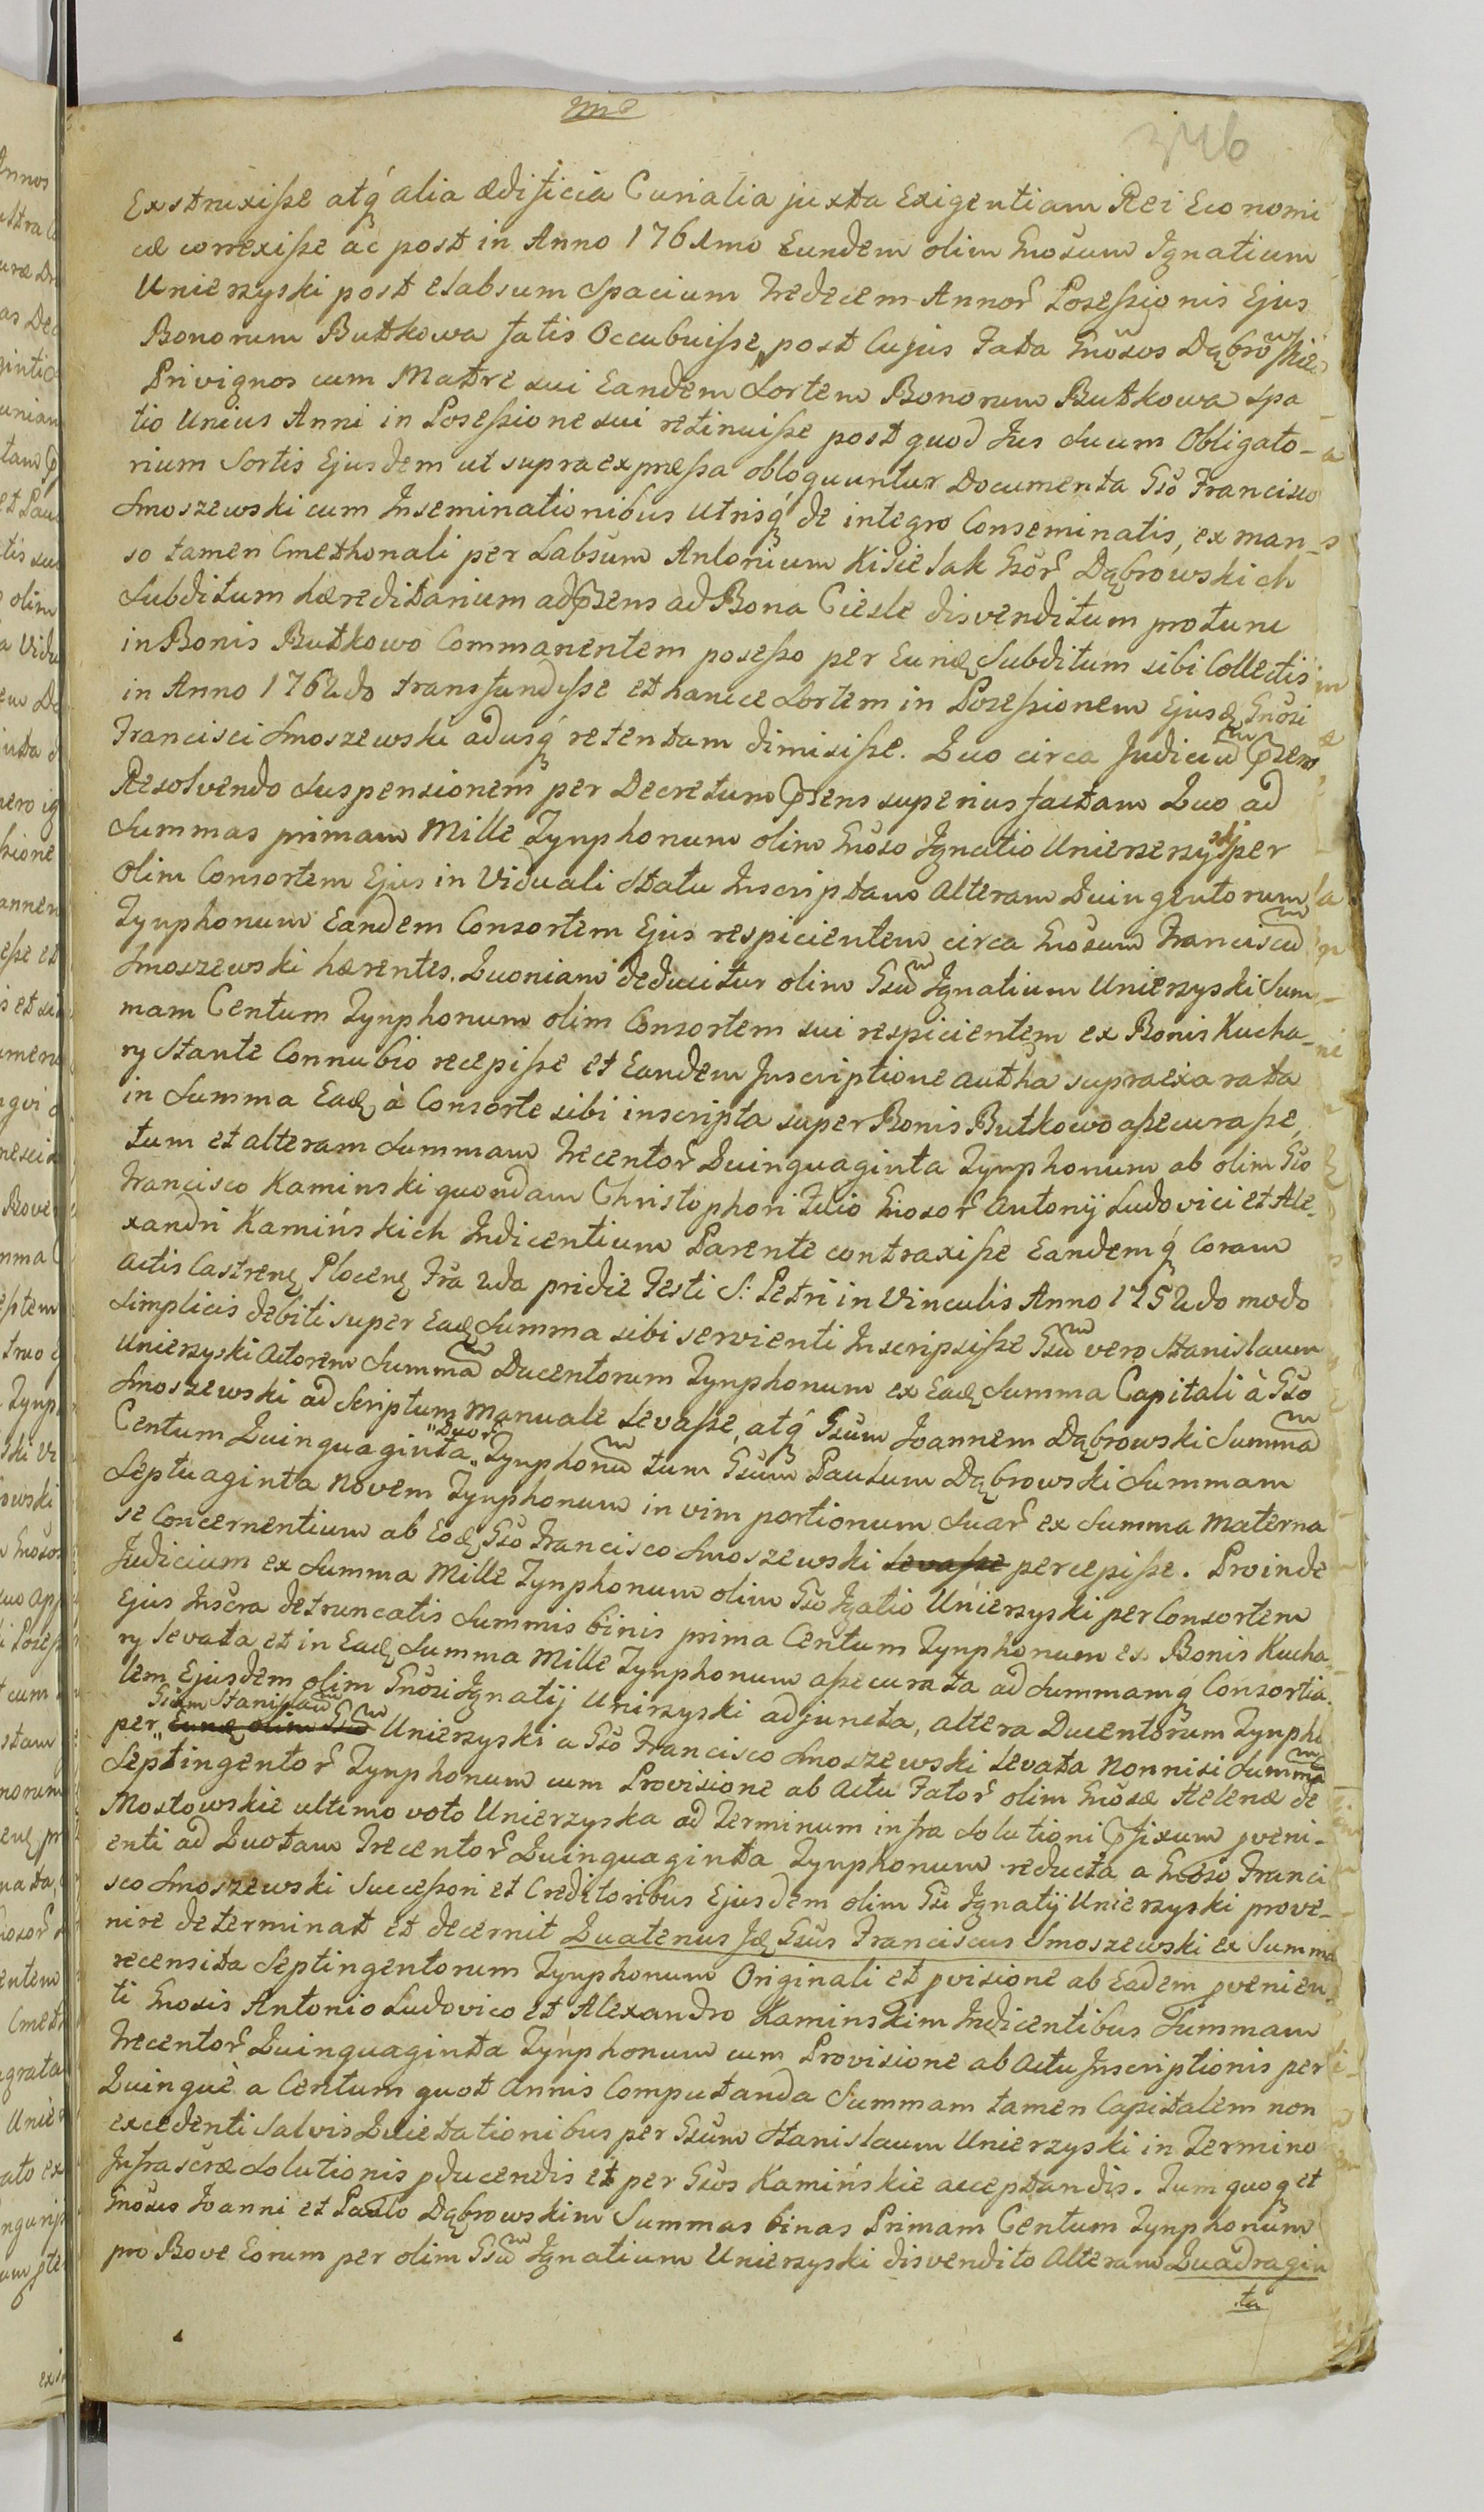 346
Exstruxisse atq́ alia ædificia Curialia juxta Exigentiam Rei Economi
cæ correxisse ac post in Anno 1761mo Eundem olim Gnosum Ignatium
Unierzyski post elabsum Spacium Tredecem Annor̃ Posessionis Ejus
Bonorum Butkowa fatis Occubuisse, post Cujus Fata Gnõsos Dąbrowskie
Privignos cum Matre sui Eandem Sortem Bonorum Butkowa spa
tio Unius Anni in Posessione sui retinuisse post quod Jus Suum Obligato-
rium Sortis Ejusdem ut supra expressa obloquuntur Documenta Gso Francisco
Smoszewski cum Inseminationibus utrisq́ de integro Conseminatis, ex man-
so tamen Cmethonali per Labsum Antonium Kisielak Gsor̃ Dąbrowskich
Subditum hæreditarium ad pñsens ad Bona Ciesle disvenditum protunc
in Bonis Butkowo Commanentem posesso per Eund Subditum sibi Collectis
in Anno 1762do transfundisse et hancce Sortem in Posessionem Ejusd Gnõsi
Francisci Smoszewski adusq́ retentam dimisisse. Quo circa Judicium pñsens
Resolvendo Suspensionem per Decretum pñsens superius factam Quo ad
Summas primam Mille Tynphonum olim Gnõso Ignatio Unierzerzyski per
Olim Consortem Ejus in Viduali Statu Inscriptam Alteram Quingentorum
Tynphonum Eandem Consortem Ejus respicientem circa Gnosum Franciscum
Smoszewski hærentes. Quoniam deducitur olim Gsum Ignatium Unierzyski Sum
mam Centum Tynphonum olim Consortem sui respicientem ex Bonis Kucha-
ry Stante Connubio recepisse et Eandem Inscriptione autħa supra exarata
in Summa Ead à Consorte sibi inscripta super Bonis Butkowo assecurasse,
tum et alteram Summam Trecentor̃ Quinquaginta Tynphonum ab olim Gso
Francisco Kaminski quondam Christophori Filio Gnosor̃ Antonij Ludovici et Ale-
xandri Kamińskich Indicentium Parente contraxisse Eandemq́ Coram
Actis Castren Plocen Fra 2da pridie Festi S: Petri in Vinculis Anno 1752do modo
Simplicis debiti super Ead Summa sibi servienti Inscripsisse Gsum vero Stanislaum
Unierzyski Actorem Summam Ducentorum Tynphonum ex Ead Summa Capitali à Gso
Smoszewski ad Scriptum Manuale Levasse, atq́ Gsum Joannem Dąbrowski Summam
Centum Quinquaginta "Duor̃" Tynphonum tum Gsum Paulum Dąbrowski Summam
Septuaginta Novem Tynphonum in vim portionum Suar̃ ex Summa Materna
se Concernentium ab Eod Gso Francisco Smoszewski Levasse percepisse. Proinde
Judicium ex Summa Mille Tynphonum olim Gso Igatio Unierzyski per Consortem
Ejus Inscra detruncatis Summis binis prima Centum Tynphonum ex Bonis Kucha
ry levata et in Ead Summa Mille Tynphonum assecurata ad Summamq́ Consortia
lem Ejusdem olim Gnõsi Ignatij Unirzyski adjuncta, altera Ducentorum Tynpho
Gsum Stanislaum
per" Eund olim Gsum Unierzyski a Gso Francisco Smoszewski levata Nonnisi Summam
Septingentor̃ Tynphonum cum Provisione ab Actu Fator̃ olim Gnõsæ Helenæ de
Mostowskie ultimo voto Unierzyska ad Terminum infra Solutioni pfixum pveni-
enti ad Quotam Trecentor̃ Quinquaginta Tynphonum reducta a Gnoso Franci
sco Smoszewski Successori et Creditoribus Ejusdem olim Gsi Ignatij Unierzyski prove-
nire determinat et decernit Quatenus Jd Gsus Franciscus Smoszewski ex Summa
recensita Septingentorum Tynphonum Originali et pvisione ab Eadem pvenien
ti Gnosis Antonio Ludovico et Alexandro Kaminskim Indicentibus Summam
Trecentor̃ Quinquaginta Tynphonum cum Provisione ab Actu Inscriptionis per
Quinque à Centum quot Annis Computanda Summam tamen Capitalem non
excedenti Salvis Quietationibus per Gsum Stanislaum Unierzyski in Termino
Infrascræ Solutionis pducendis et per Gsos Kamińskie acceptandis. Tum quoq et
Gnosis Joanni et Paulo Dąbrowskim Summas binas Primam Centum Tynphonum
pro Bove Eorum per olim Gsum Ignatium Unierzyski disvendito Alteram Quadragin
ta